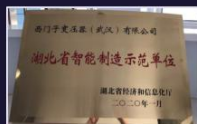 西门子变压器（武汉）有限公司
湖北省智能制造示范单位
湖北省经济和信息化厅
二〇二〇年一月